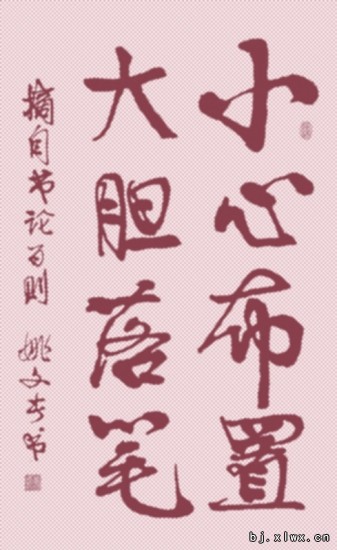 小心布置
大胆落笔
摘自书论百则
姚文奎书
bj.xlwx.cn